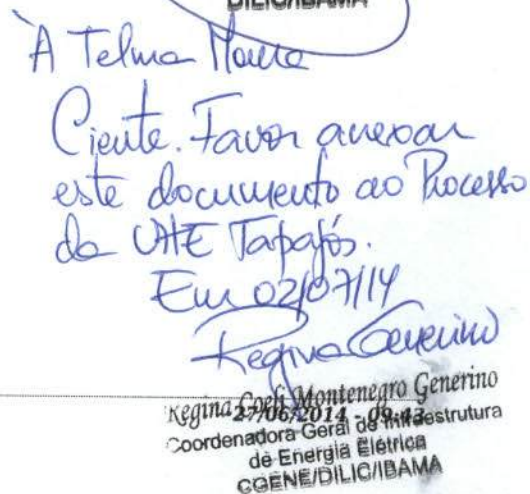 DILIC/IBAMA
À Telma Moura
Ciente. Favor anexar
este documento ao Processo
da UHE Tapajós.
Em 02/07/14
Regina Generino
Regina Coeli Montenegro Generino
27/06/2014 - 09:43
Coordenadora Geral de Infraestrutura
de Energia Elétrica
CGENE/DILIC/IBAMA